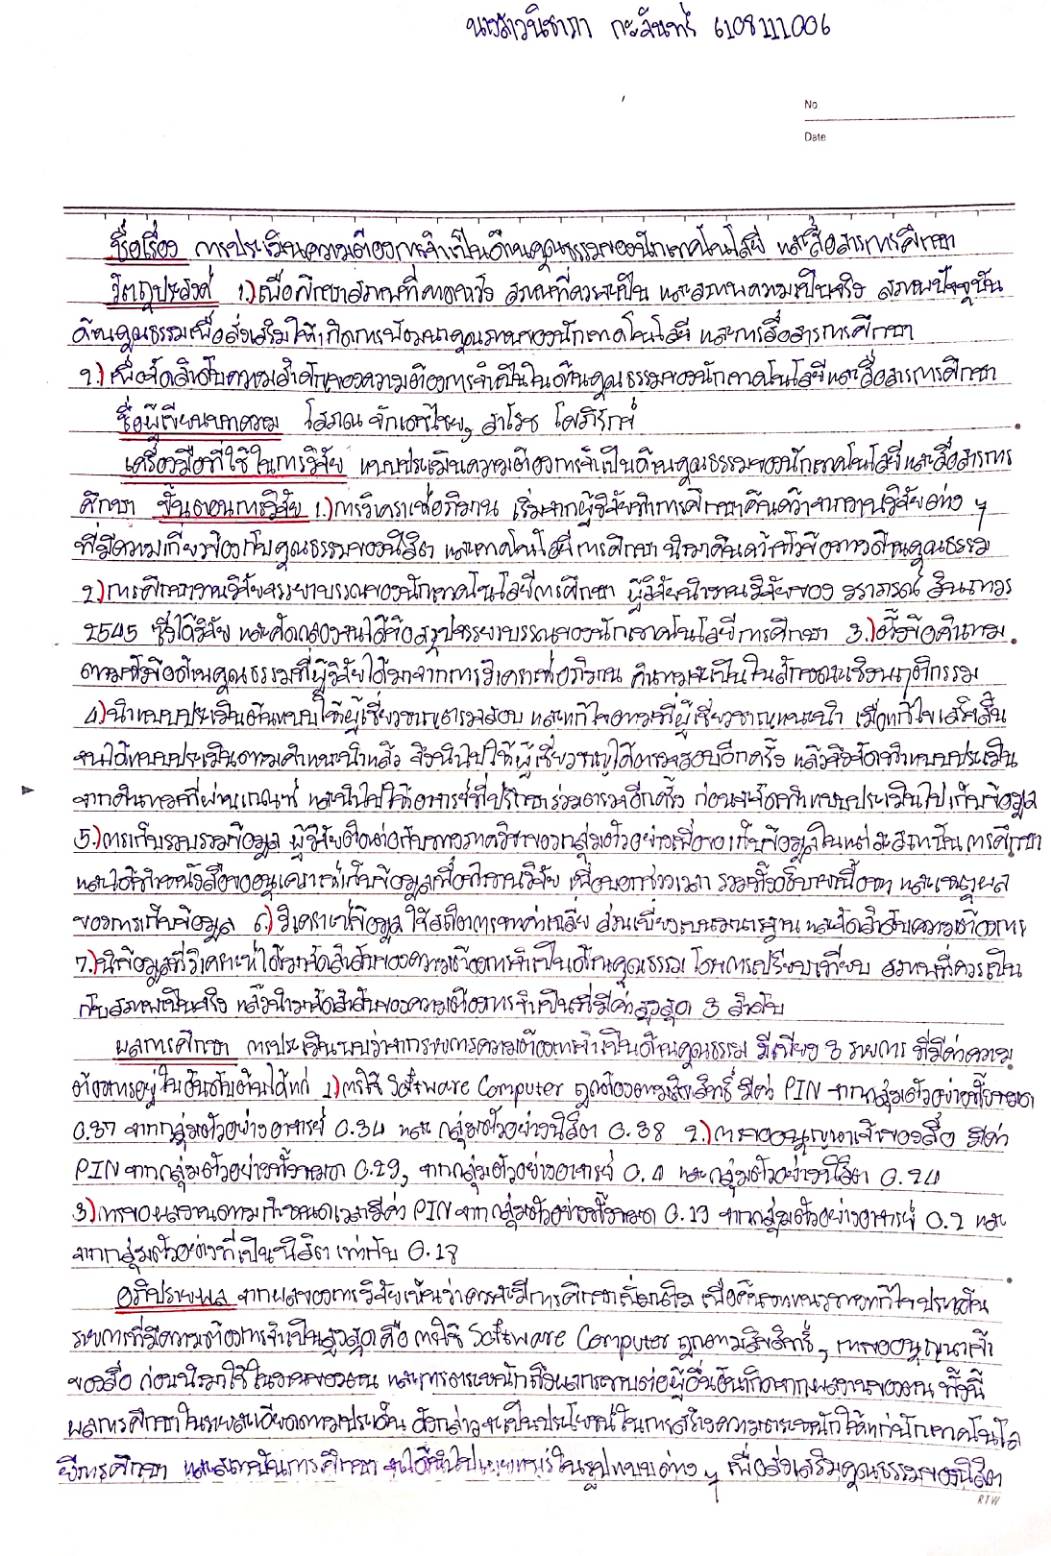 นางสาวนิชาภา กะลันทร์ 6108111006
No
Date
ชื่อเรื่อง การประเมินความต้องการจำเป็นด้านคุณธรรมของนักเทคโนโลยี และสื่อสารการศึกษา
วัตถุประสงค์ 1.) เพื่อศึกษาสภาพที่คาดหวัง สภาพที่ควรจะเป็น และสภาพความเป็นจริง สภาพปัจจุบัน
ด้านคุณธรรมเพื่อส่งเสริมให้เกิดการพัฒนาคุณภาพของนักเทคโนโลยี และการสื่อสารการศึกษา
2.) เพื่อจัดลำดับความสำคัญของความต้องการจำเป็นในด้านคุณธรรมของนักเทคโนโลยีและสื่อสารการศึกษา
ชื่อผู้เขียนบทความ โสภณ จักเอาไชย, สาโรช โศภีรักข์
เครื่องมือที่ใช้ในการวิจัย แบบประเมินความต้องการจำเป็นด้านคุณธรรมของนักเทคโนโลยีและสื่อสารการ
ศึกษา ขั้นตอนการวิจัย 1.) การวิเคราะห์อภิมาน เริ่มจากผู้วิจัยทำการศึกษาค้นคว้าจากงานวิจัยต่าง ๆ
ที่มีความเกี่ยวข้องกับคุณธรรมของนิสิต และเทคโนโลยีการศึกษา นำมาค้นคว้าหัวข้อทางด้านคุณธรรม
2.) การศึกษางานวิจัยจรรยาบรรณของนักเทคโนโลยีการศึกษา ผู้วิจัยนำงานวิจัยของ วราภรณ์ สินถาวร
2545 ซึ่งได้วิจัย และคัดกรองจนได้ข้อสรุปจรรยาบรรณของนักเทคโนโลยีการศึกษา 3.) ตั้งข้อคำถาม
ตามหัวข้อด้านคุณธรรมที่ผู้วิจัยได้มาจากการวิเคราะห์อภิมาน คำถามจะเป็นในลักษณะเชิงพฤติกรรม
4.) นำแบบประเมินต้นแบบให้ผู้เชี่ยวชาญตรวจสอบ และแก้ไขตามที่ผู้เชี่ยวชาญแนะนำ เมื่อแก้ไขเสร็จสิ้น
จนได้แบบประเมินตามคำแนะนำแล้ว จึงนำไปให้ผู้เชี่ยวชาญได้ตรวจสอบอีกครั้ง แล้วจึงจัดทำแบบประเมิน
จากคำถามที่ผ่านเกณฑ์ และนำไปให้อาจารย์ที่ปรึกษาร่วมตรวจอีกครั้ง ก่อนจะจัดทำแบบประเมินไปเก็บข้อมูล
5.) การเก็บรวบรวมข้อมูล ผู้วิจัยติดต่อกับทางภาควิชาของกลุ่มตัวอย่างเพื่อขอเก็บข้อมูลในแต่ละสถาบันการศึกษา
และได้ทำหนังสือขออนุเคราะห์เก็บข้อมูลเพื่อทำงานวิจัย เพื่อบอกช่วงเวลา รวมทั้งอธิบายเนื้อหา และเหตุผล
ของการเก็บข้อมูล 6.) วิเคราะห์ข้อมูล ใช้สถิติการหาค่าเฉลี่ย ส่วนเบี่ยงเบนมาตรฐาน และจัดลำดับความต้องการ
7.) นำข้อมูลที่วิเคราะห์ได้มาจัดลำดับของความต้องการจำเป็นด้านคุณธรรม โดยการเปรียบเทียบ สภาพที่ควรเป็น
กับสภาพเป็นจริง แล้วนำมาจัดลำดับของความต้องการจำเป็นที่มีค่าสูงสุด 3 ลำดับ
ผลการศึกษา การประเมินพบว่าจากรายการความต้องการจำเป็นด้านคุณธรรม มีเพียง 3 รายการ ที่มีค่าความ
ต้องการอยู่ในอันดับต้นได้แก่ 1.) การใช้ Software Computer ถูกต้องตามลิขสิทธิ์ มีค่า PIN จากกลุ่มตัวอย่างทั้งหมด
0.37 จากกลุ่มตัวอย่างอาจารย์ 0.34 และ กลุ่มตัวอย่างนิสิต 0.38 2.) การขออนุญาตเจ้าของสื่อ มีค่า
PIN จากกลุ่มตัวอย่างทั้งหมด 0.29, จากกลุ่มตัวอย่างอาจารย์ 0.4 และกลุ่มตัวอย่างนิสิต 0.24
3.) การขอผลงานตามกำหนดเวลามีค่า PIN จากกลุ่มตัวอย่างทั้งหมด 0.19 จากกลุ่มตัวอย่างอาจารย์ 0.2 และ
จากกลุ่มตัวอย่างที่เป็นนิสิต เท่ากับ 0.18
อภิปรายผล จากผลของการวิจัยเห็นว่าควรจะมีการศึกษาเพิ่มเติม เพื่อค้นหาแนวทางแก้ไขประเด็น
รายการที่มีความต้องการจำเป็นสูงสุด คือ การใช้ Software Computer ถูกตามลิขสิทธิ์, การขออนุญาตเจ้า
ของสื่อ ก่อนนำมาใช้ในงานของตน และการตระหนักถึงผลกระทบต่อผู้อื่นอันเกิดจากผลงานของตน ทั้งนี้
ผลการศึกษาในรายละเอียดตามประเด็น ดังกล่าวจะเป็นประโยชน์ในการสร้างความตระหนักให้แก่นักเทคโนโล
ยีการศึกษา และสถาบันการศึกษา จะได้นำไปเผยแพร่ในรูปแบบต่าง ๆ เพื่อส่งเสริมคุณธรรมของนิสิต
RTW